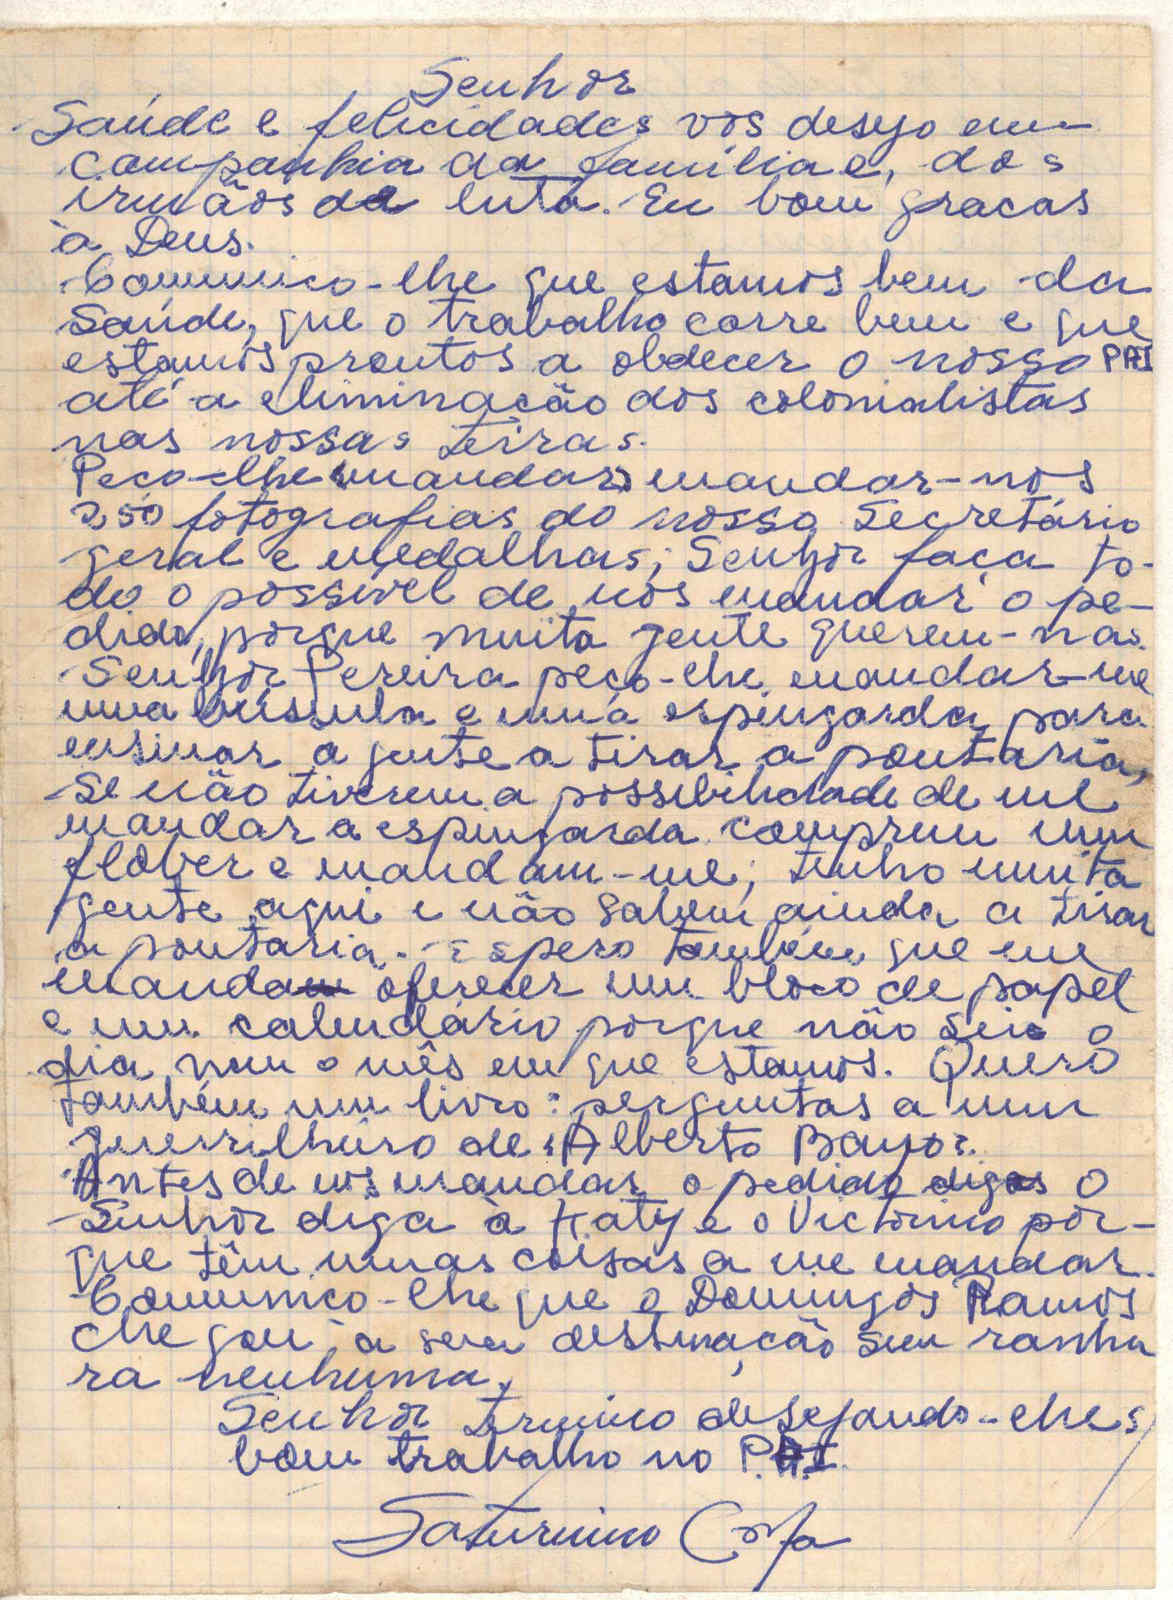 Senhor
Saúde e felicidades vos desejo em
companhia da família e, dos
irmãos da luta. Eu bom graças
à Deus.
Comunico-lhe que estamos bem da
Saúde, que o trabalho corre bem e que
estamos prontos a obdecer o nosso PAI
até a eliminação dos colonialistas
nas nossas teiras.
Peço-lhe (mandar) mandar-nos
250 fotografias do nosso Secretário
geral e medalhas; Senhor faça to-
do o possivel de nos mandar o pe-
dido, porque muita gente querem-nas.
Senhor Pereira peço-lhe mandar-me
uma bússula e uma espingarda para
ensinar a gente a tirar a pontaria,
Se não tiverem a possibilidade de me
mandar a espingarda comprem um
flober e mandam-me; tenho muita
gente aqui e não sabem ainda a tirar
a pontaria. Espero também que me
manda oferecer um bloco de papel
e um calendário porque não sei o
dia nem o mês em que estamos. Quero
também um livro: perguntas a um
guerrilheiro de Alberto Bayo.
Antes de nos mandar o pedido digas o
Senhor diga à Haty e o Victorino por-
que têm umas coisas a me mandar.
Comunico-lhe que o Domingos Ramos
chegou a sua destinação sem ranhu
ra nenhuma.
Senhor termino desejando-lhes
bom trabalho no P.A.I.
Saturnino Costa